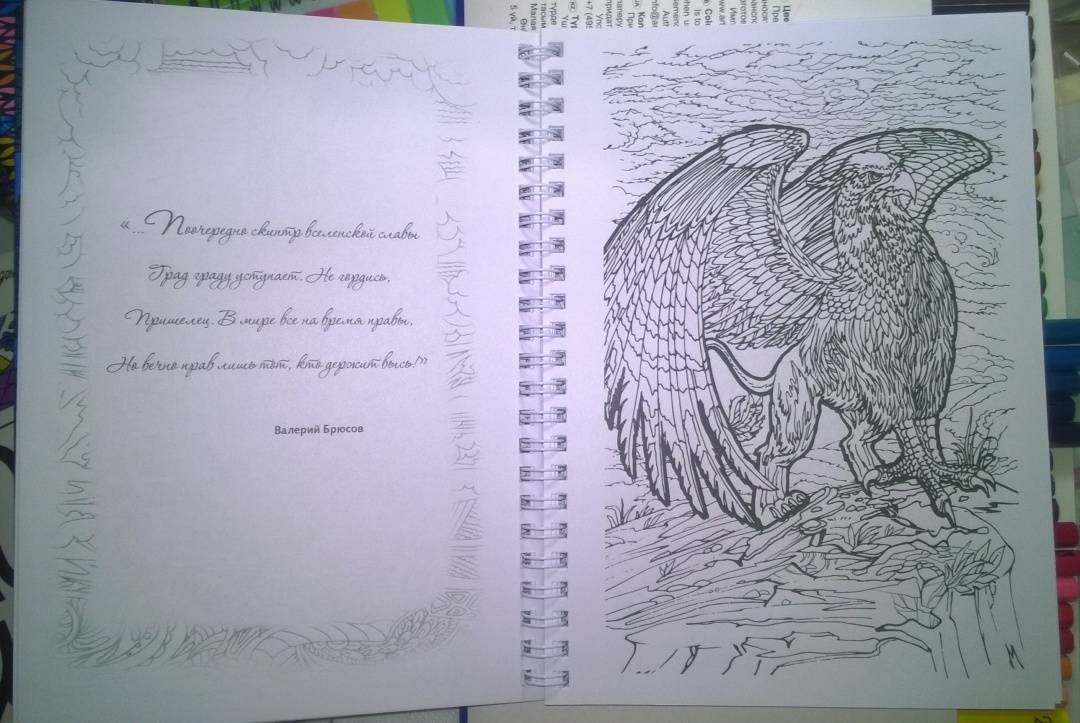 «...Поочередно скиптр вселенской славы
Град граду уступает. Не гордись,
Пришелец. В мире все на время правы,
Но вечно прав лишь тот, кто держит высь!»
Валерий Брюсов